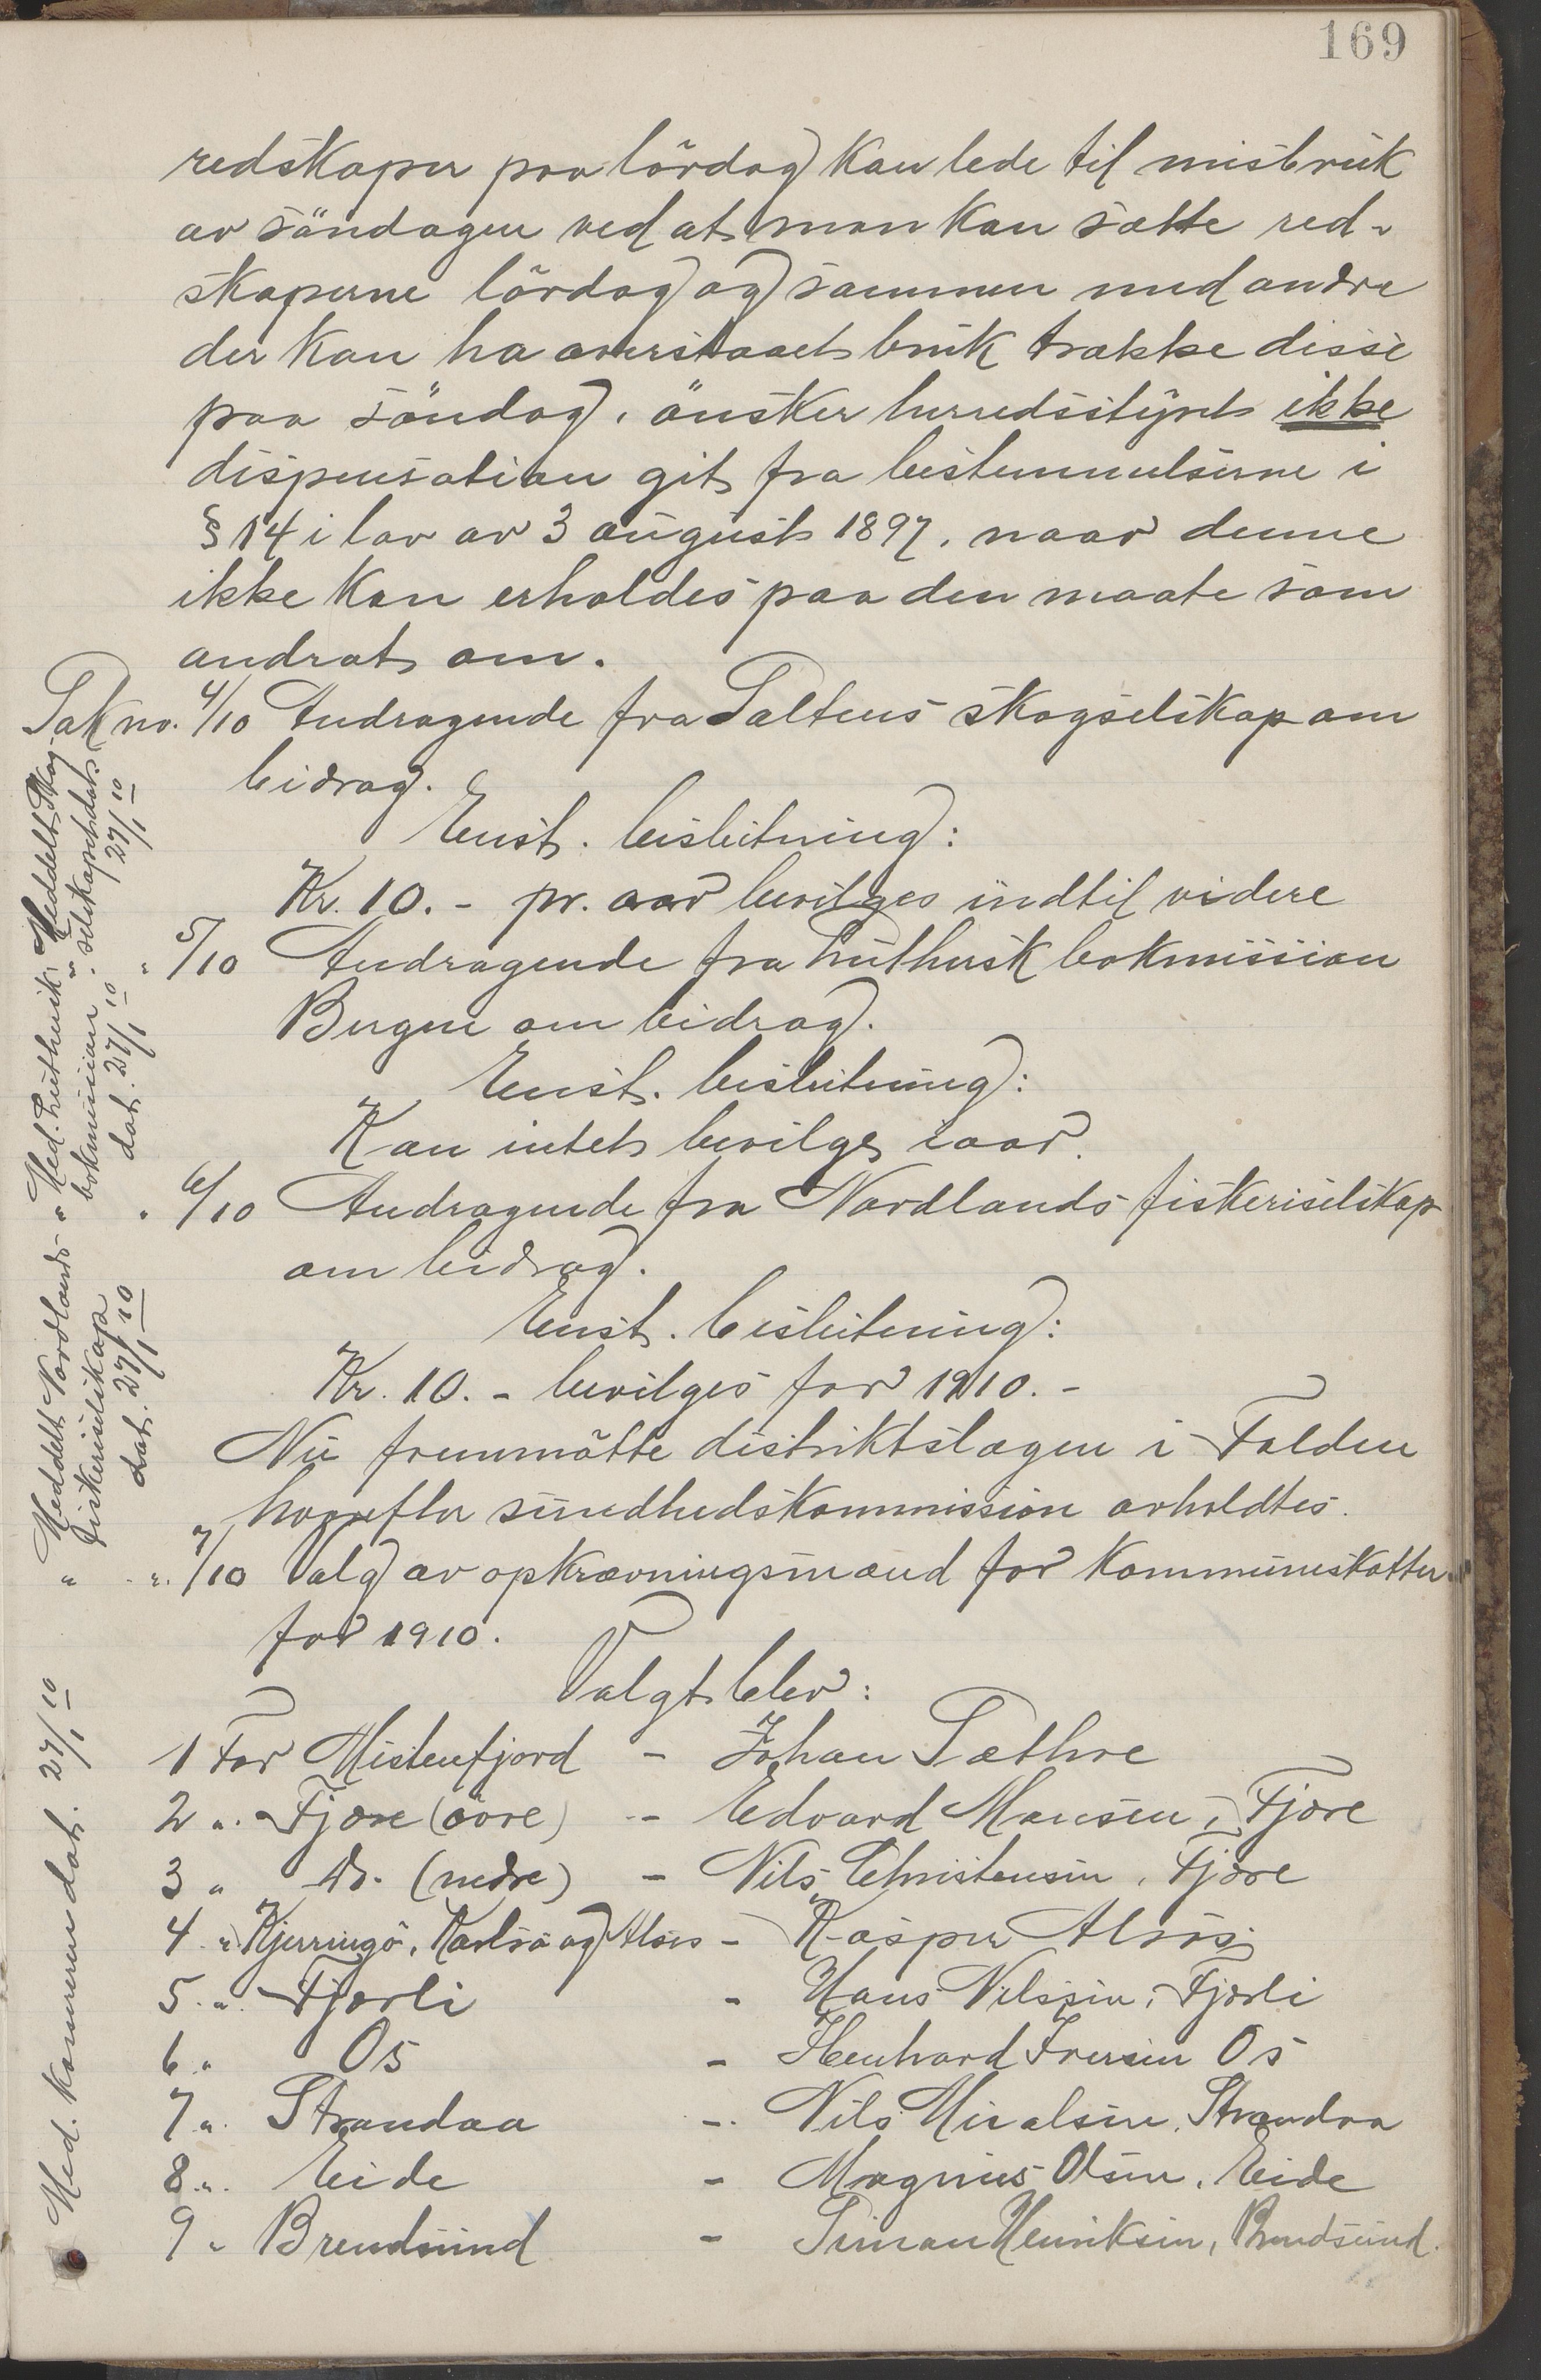 169
redskaper paa lördag kan lede til misbruk
av söndagen ved at man kan sætte red-
skaperne lördag og sammen med andre
der kan ha overstaaet bruk trække disse
paa söndag, önsker herredsstyret ikke
dispensation git fra bestemmelserne i
§ 14 i lov av 3 august 1897, naar denne
ikke kan erholdes paa den maate som
andrat om.
Sak no. 4/10 Andragende fra Saltens skogselskap om
bidrag.
Enst. beslutning:
Kr. 10.- pr. aar bevilges indtil videre
" 5/10 Andragende fra Luthersk bokmission
Bergen om bidrag.
Enst. beslutning:
Kan intet bevilges iaar.
" 6/10 Andragende fra Nordlands fiskeriselskap
om bidrag.
Enst. beslutning:
Kr. 10.- bevilges for 1910.-
Nu fremmötte distriktslægen i Folden
hvorefter sundhedskommission avholdtes.
" " 7/10 Valg av opkrævningsmænd for kommuneskatten
for 1910.
Valgt blev:
1 For Mistenfjord - Johan Sæthre
2 " Fjære (övre) - Edvard Monsen, Fjære
3 " do. (nedre) - Nils Christensen, Fjære
4 " Kjerringö, Karlsö og Alsos - Kasper Alsos
5 " Fjærli - Hans Nilssen, Fjærli
6 " Os - Iversen Os
7 " Strandaa - Nils Strandaa
8 " Eide - Magnus Olsen, Eide
9 " Brendsund - Henriksen, Brendsund.
Meddelt Skog-
selskapet dat.
27/1 10
" Med. Luthersk
bokmission
dat. 27/1 10
Meddelt Nordlands
fiskeriselskap
dat. 27/1 10
Med. kæmneren dat. 27/1 10